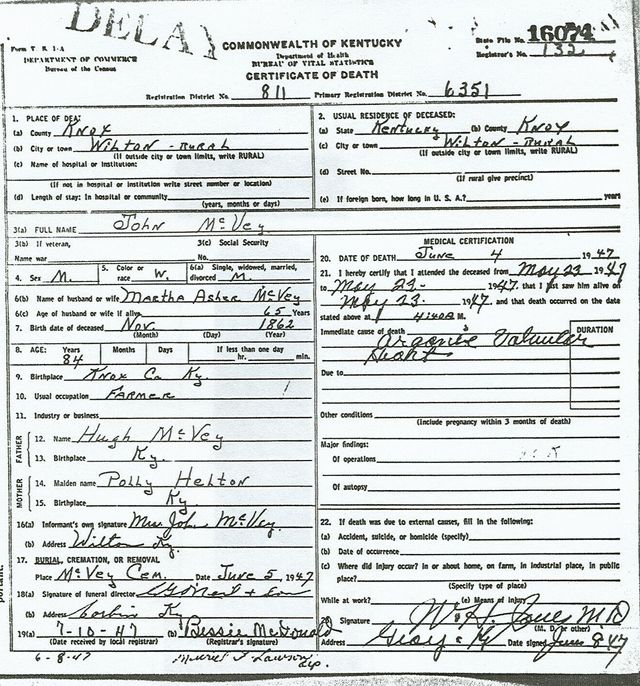 DELAY
COMMONWEALTH OF KENTUCKY
Department of Health
BUREAU OF VITAL STATISTICS
CERTIFICATE OF DEATH
DEPARTMENT OF COMMERCE
Bureau of the Census
State File No. 16074
Registrar's No. 132
Registration District No. 811 Primary Registration District No. 6351
1. PLACE OF DEA
(a) County Knox
(b) City or town Wilton - Rural
(If outside city or town limits, write RURAL)
(c) Name of hospital or institution:
(If not in hospital or institution write street number or location)
(d) Length of stay: In hospital or community
(years, months or days)
2. USUAL RESIDENCE OF DECEASED:
(a) State Kentucky (b) County Knox
(c) City or town Wilton - Rural
(If outside city or town limits, write RURAL)
(d) Street No.
(If rural give precinct)
(e) If foreign born, how long in U. S. A.? years
3(a) FULL NAME John McVey
3(b) If veteran, 3(c) Social Security
Name war No.
4. Sex M. 5. Color or race W. 6(a) Single, widowed, married, divorced M.
6(b) Name of husband or wife Martha Asher McVey
6(c) Age of husband or wife if alive 65 Years
7. Birth date of deceased Nov. 1862
(Month) (Day) (Year)
8. AGE: Years Months Days If less than one day
84 hr. min.
9. Birthplace Knox Co. Ky.
10. Usual occupation Farmer
11. Industry or business
FATHER
12. Name Hugh McVey
13. Birthplace Ky.
MOTHER
14. Maiden name Polly Helton
15. Birthplace Ky
16(a) Informant's own signature Mrs. John McVey.
(b) Address Wilton Ky.
17. BURIAL, CREMATION, OR REMOVAL
Place McVey Cem. Date June 5, 1947
18(a) Signature of funeral director
(b) Address Corbin Ky
19(a) 7-10-47 (b) Bessie McDonald
(Date received by local registrar) (Registrar's signature)
6-8-47
MEDICAL CERTIFICATION
20. DATE OF DEATH June 4 1947
21. I hereby certify that I attended the deceased from May 22 1947
to May 22- 1947. that I last saw him alive on
May 23. 1947. and that death occurred on the date
stated above at 4:40 A M.
Immediate cause of death Valvular
DURATION
Due to
Other conditions
(Include pregnancy within 3 months of death)
Major findings:
Of operations
Of autopsy
22. If death was due to external causes, fill in the following:
(a) Accident, suicide, or homicide (specify)
(b) Date of occurrence
(c) Where did injury occur? in or about home, on farm, in industrial place, in public
place?
(Specify type of place)
While at work? (e) Means of injury
Signature M D
(M. D. or other)
Address Date signed June 8 47